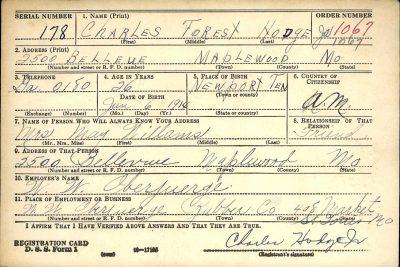 SERIAL NUMBER 1. NAME (Print) ORDER NUMBER
178 CHARLES TOREST HODGE Jr 1067
(First) (Middle) (Last)
2. ADDRESS (Print)
2500 BELLEVUE MAPLEWOOD MO
(Number and street or R. F. D. number) (Town) (County) (State)
3. TELEPHONE 4. AGE IN YEARS 5. PLACE OF BIRTH 6. COUNTRY OF CITIZENSHIP
0180 26 NEWPORT
DATE OF BIRTH (Town or county)
Jun. 6 1914 TEN A.M.
(Exchange) (Number) (Mo.) (Day) (Yr.) (State or country)
7. NAME OF PERSON WHO WILL ALWAYS KNOW YOUR ADDRESS 8. RELATIONSHIP OF THAT PERSON
Mrs May Williams Friend
(Mr., Mrs., Miss) (First) (Middle) (Last)
9. ADDRESS OF THAT PERSON
2500 Bellevue Maplewood Mo
(Number and street or R. F. D. number) (Town) (County) (State)
10. EMPLOYER'S NAME
W. W. Oberjuerge
11. PLACE OF EMPLOYMENT OR BUSINESS
W. W. Oberjuerge Rubber Co Market
Mo
(Number and street or R. F. D. number) (Town) (County) (State)
I AFFIRM THAT I HAVE VERIFIED ABOVE ANSWERS AND THAT THEY ARE TRUE.
REGISTRATION CARD Charles Hodge Jr
D. S. S. Form 1 (over) (Registrant's signature)